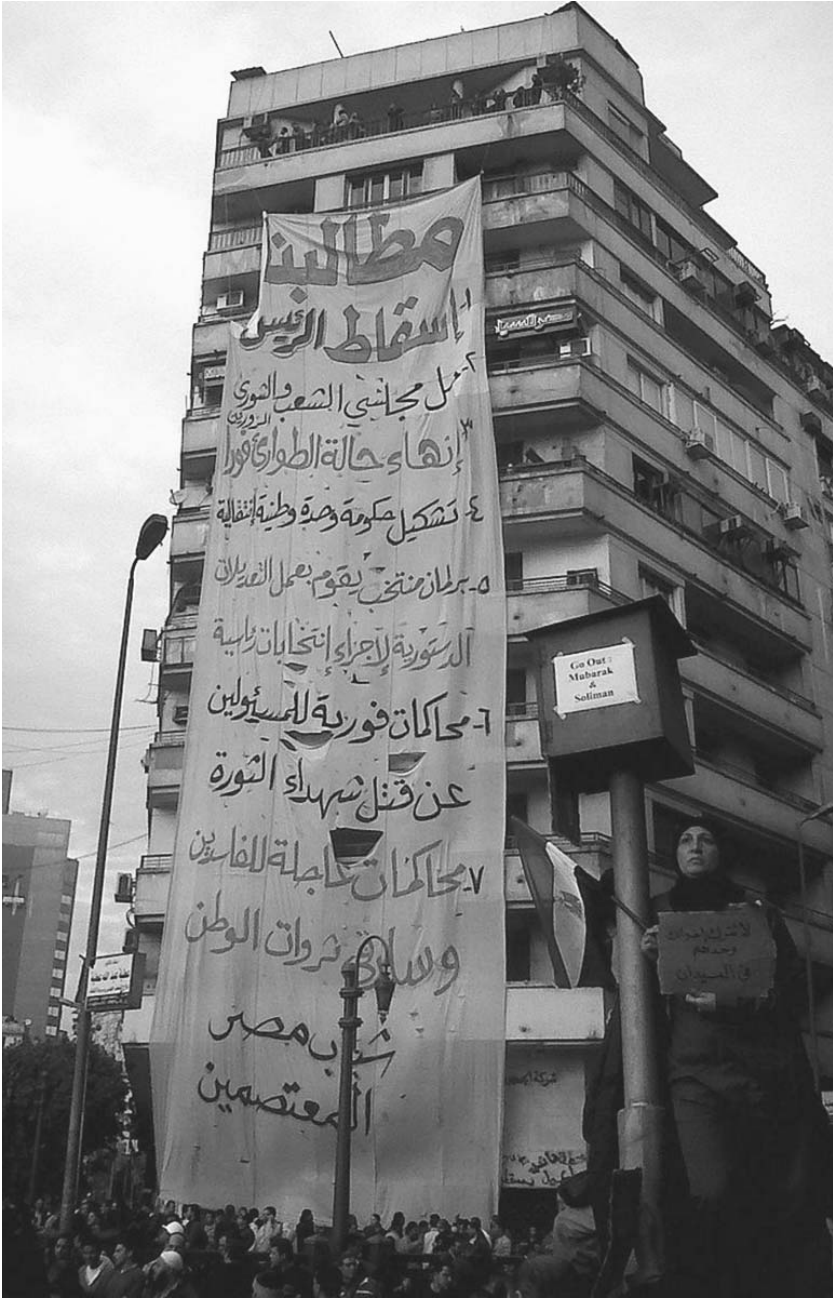 مطالبنا
١- إسقاط الرئيس
٢- حل مجلسي الشعب والشورى
المزورين
٣- إنهاء حالة الطوارئ فورا
٤- تشكيل حكومة وحدة وطنية إنتقالية
٥- برلمان منتخب يقوم بعمل التعديلات
الدستورية لإجراء إنتخابات رئاسية
٦- محاكمات فورية للمسئولين
عن قتل شهداء الثورة
٧- محاكمات عاجلة للفاسدين
وسارقى ثروات الوطن
شباب مصر
المعتصمين
Go Out :
Mubarak
&
Soliman
لا تترك إخوانك
وحدهم
في الميدان
مصر للسياحة
شركة